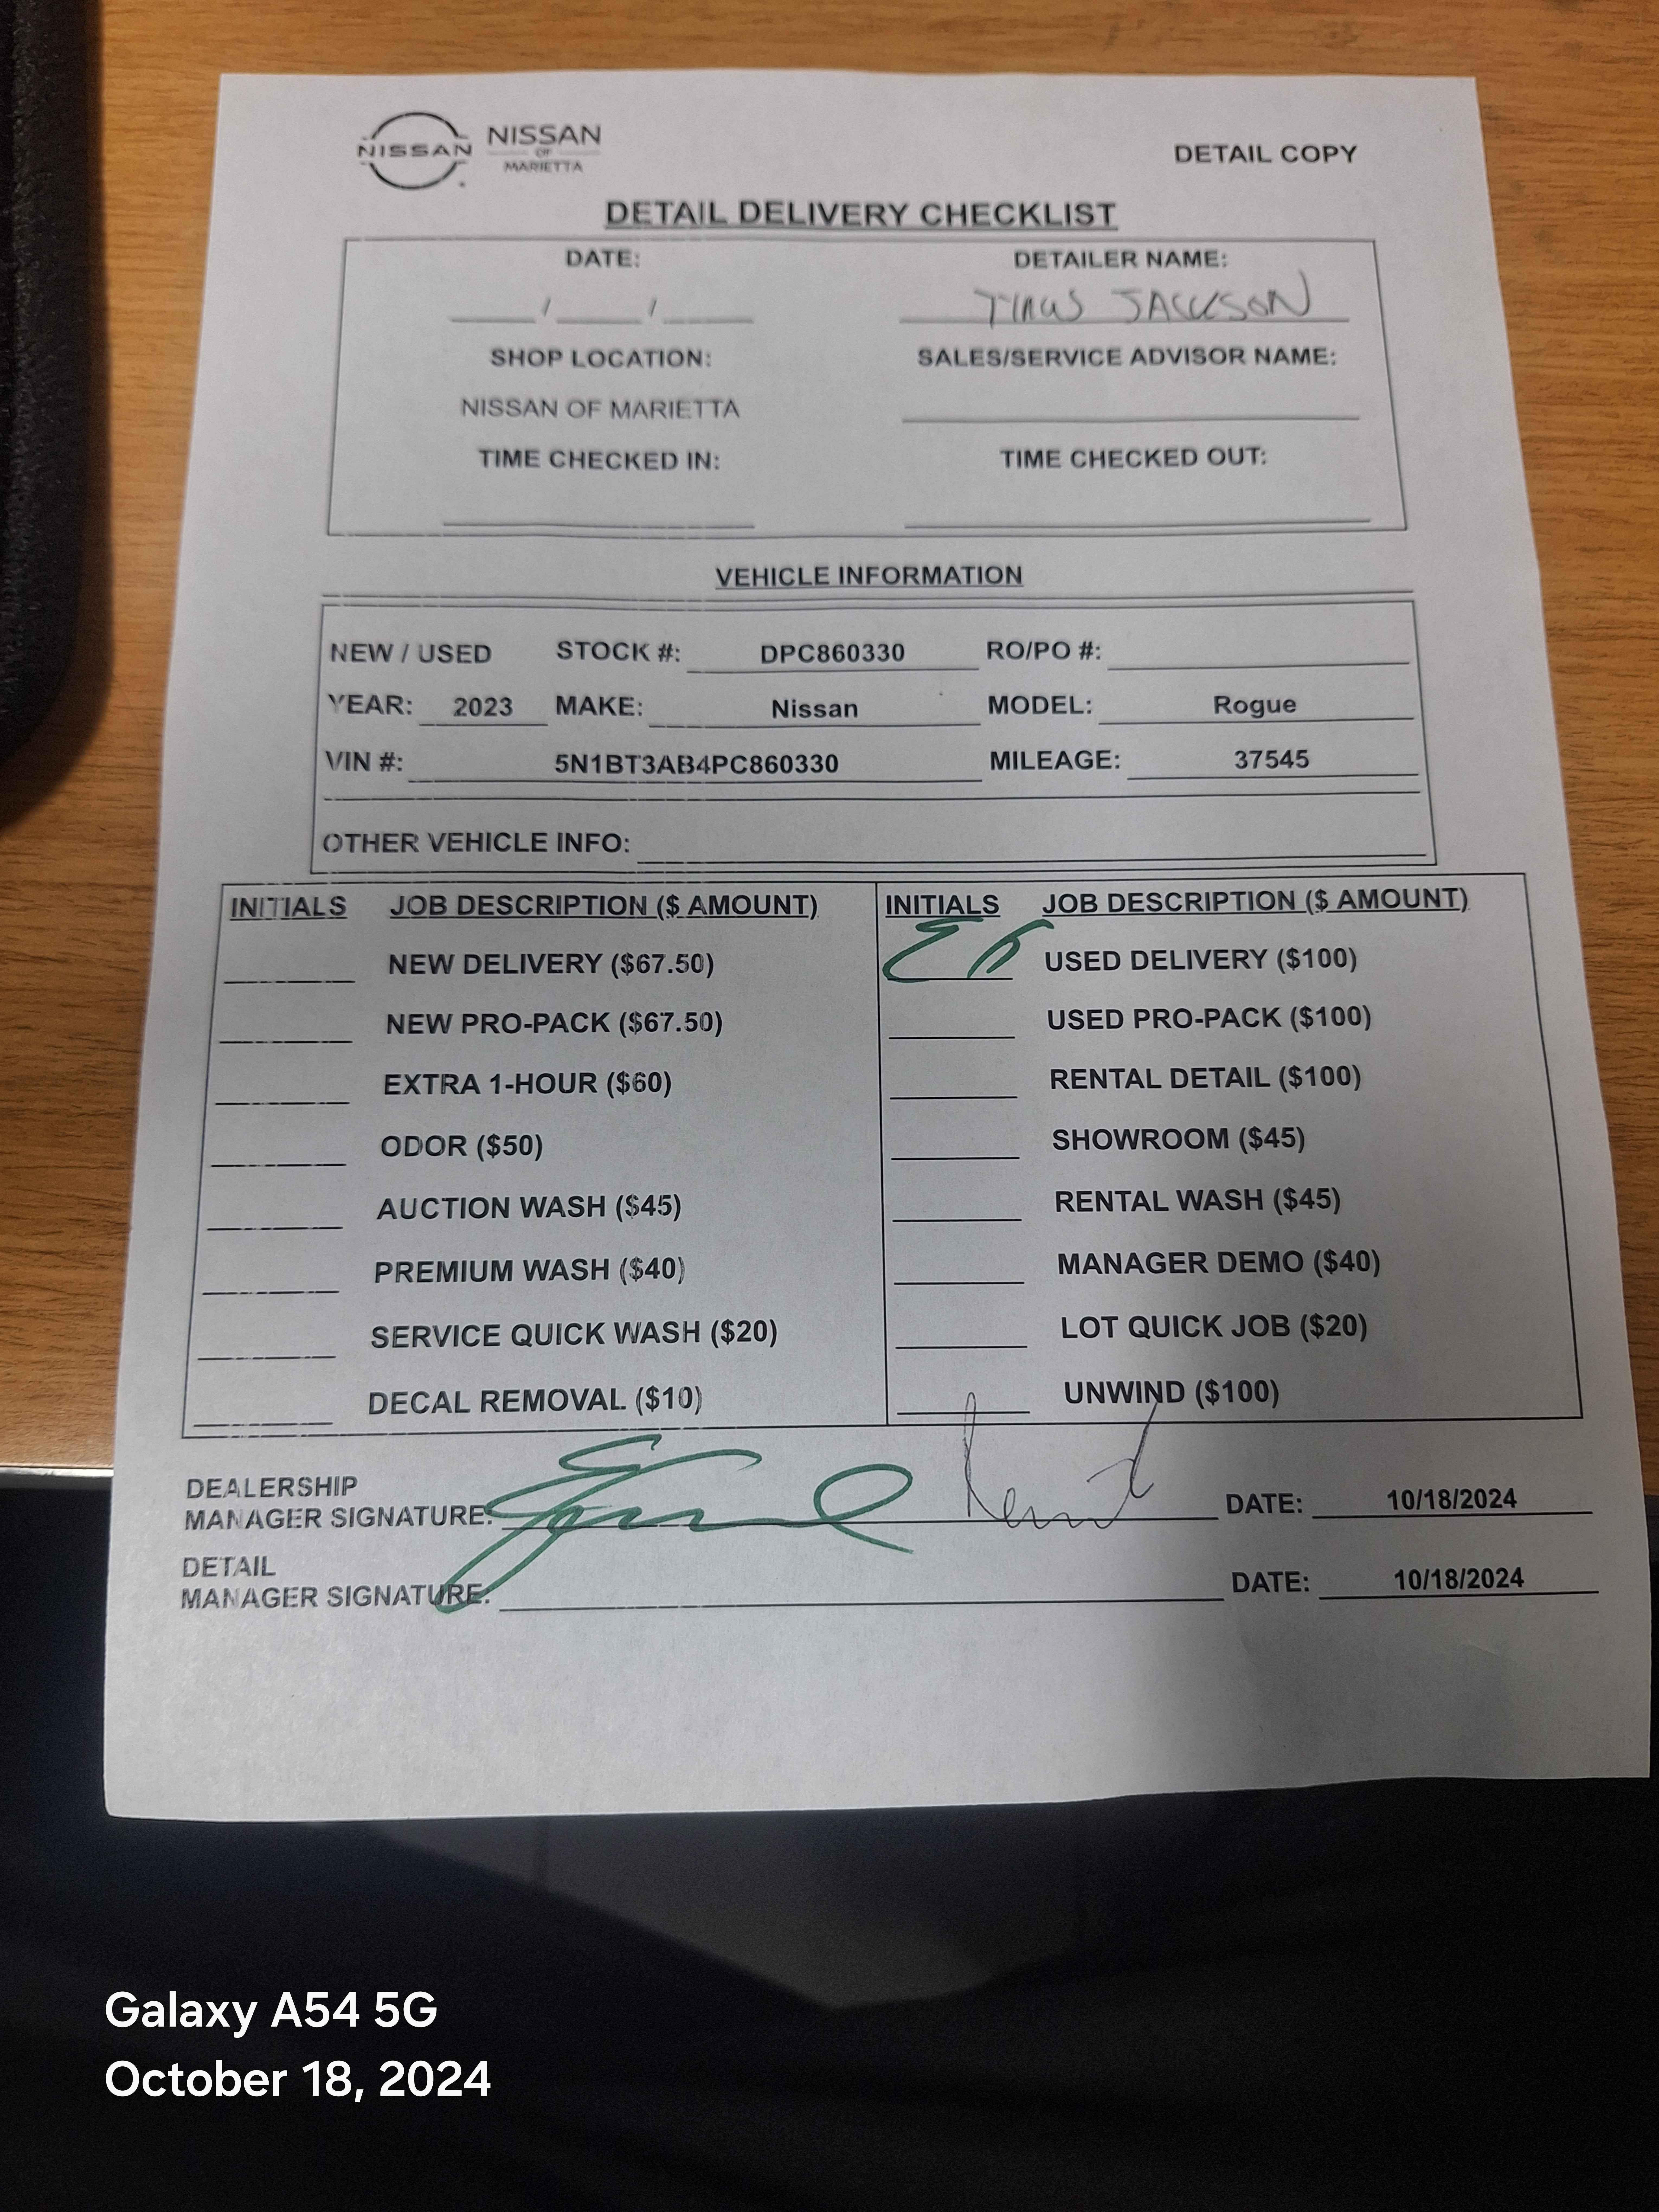 NISSAN NISSAN OF MARIETTA
DETAIL COPY
DETAIL DELIVERY CHECKLIST
DATE: DETAILER NAME:
/ / JACKSON
SHOP LOCATION: SALES/SERVICE ADVISOR NAME:
NISSAN OF MARIETTA
TIME CHECKED IN: TIME CHECKED OUT:
VEHICLE INFORMATION
NEW / USED STOCK #: DPC860330 RO/PO #:
YEAR: 2023 MAKE: Nissan MODEL: Rogue
VIN #: 5N1BT3AB4PC860330 MILEAGE: 37545
OTHER VEHICLE INFO:
INITIALS JOB DESCRIPTION ($ AMOUNT) INITIALS JOB DESCRIPTION ($ AMOUNT)
NEW DELIVERY ($67.50) USED DELIVERY ($100)
NEW PRO-PACK ($67.50) USED PRO-PACK ($100)
EXTRA 1-HOUR ($60) RENTAL DETAIL ($100)
ODOR ($50) SHOWROOM ($45)
AUCTION WASH ($45) RENTAL WASH ($45)
PREMIUM WASH ($40) MANAGER DEMO ($40)
SERVICE QUICK WASH ($20) LOT QUICK JOB ($20)
DECAL REMOVAL ($10) UNWIND ($100)
DEALERSHIP
MANAGER SIGNATURE: DATE: 10/18/2024
DETAIL
MANAGER SIGNATURE: DATE: 10/18/2024
Galaxy A54 5G
October 18, 2024